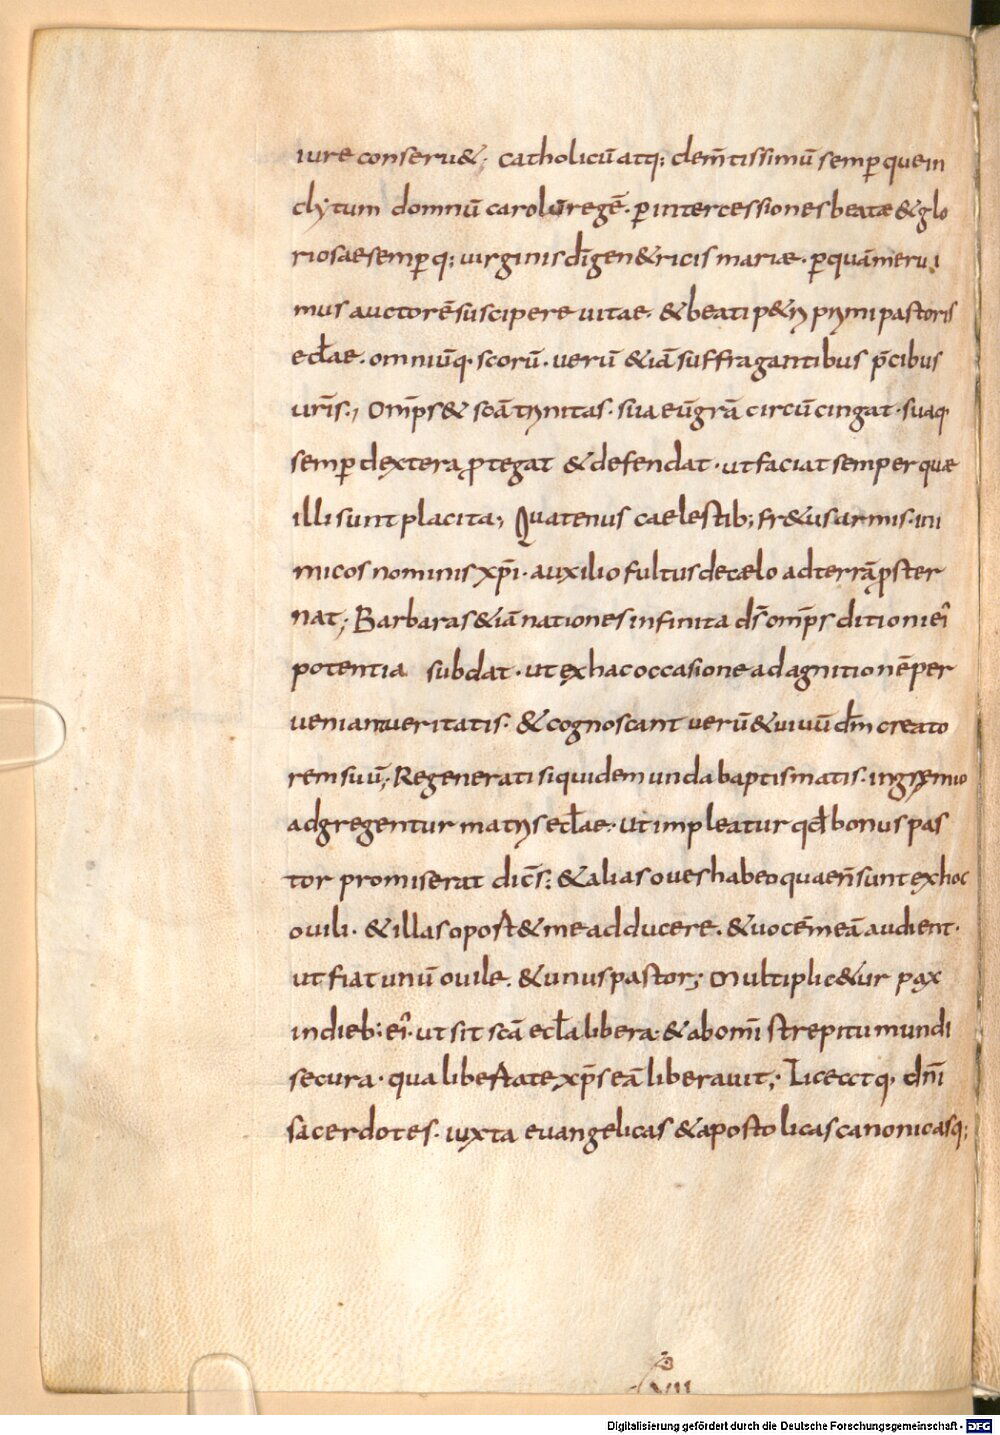 iure conseru&; catholicū atq; clem̄tissimū semp̄ quein
clytum domnū carolū regē· p̄ intercessiones beatæ & glo
riosae semp̄q; uirginis dī gen&ricis mariæ· p̄ quā merui
mus auctorē suscipere uitae· & beati p&ri primi pastoris
eclae· omniūq· scorū· uerū &iā suffragantibus p̄cibus
ur̄is; Om̄ps & scā trinitas· sua eū grā circūcingat· suaq·
semp̄ dextera p̄tegat & defendat· ut faciat semper quæ
illi sunt placita; Quatenus caelestib; fr&us armis· ini
micos nominis xp̄i· auxilio fultus de cælo ad terrā p̄ster
nat; Barbaras &iā nationes infinita ds̄ om̄ps ditioni ei
potentia subdat· ut ex hac occasione ad agnitionē per
ueniant ueritatis· & cognoscant uerū & uiuū dm̄ creato
rem suū; Regenerati siquidem unda baptismatis· in gremio
adgregentur matris eclae· ut impleatur qd bonus pas
tor promiserat dic̄s; & alias oues habeo quae n̄ sunt ex hoc
ouili· & illas oport& me adducere· & uocē meā audient·
ut fiat unū ouile· & unus pastor; Multiplic&ur pax
in dieb: ei· ut sit scā ecla libera· & ab om̄i strepitu mundi
secura· qua libertate xp̄s eā liberauit; Liceatq· dn̄i
sacerdotes· iuxta euangelicas & apostolicas canonicasq;
VII
Digitalisierung gefördert durch die Deutsche Forschungsgemeinschaft - DFG